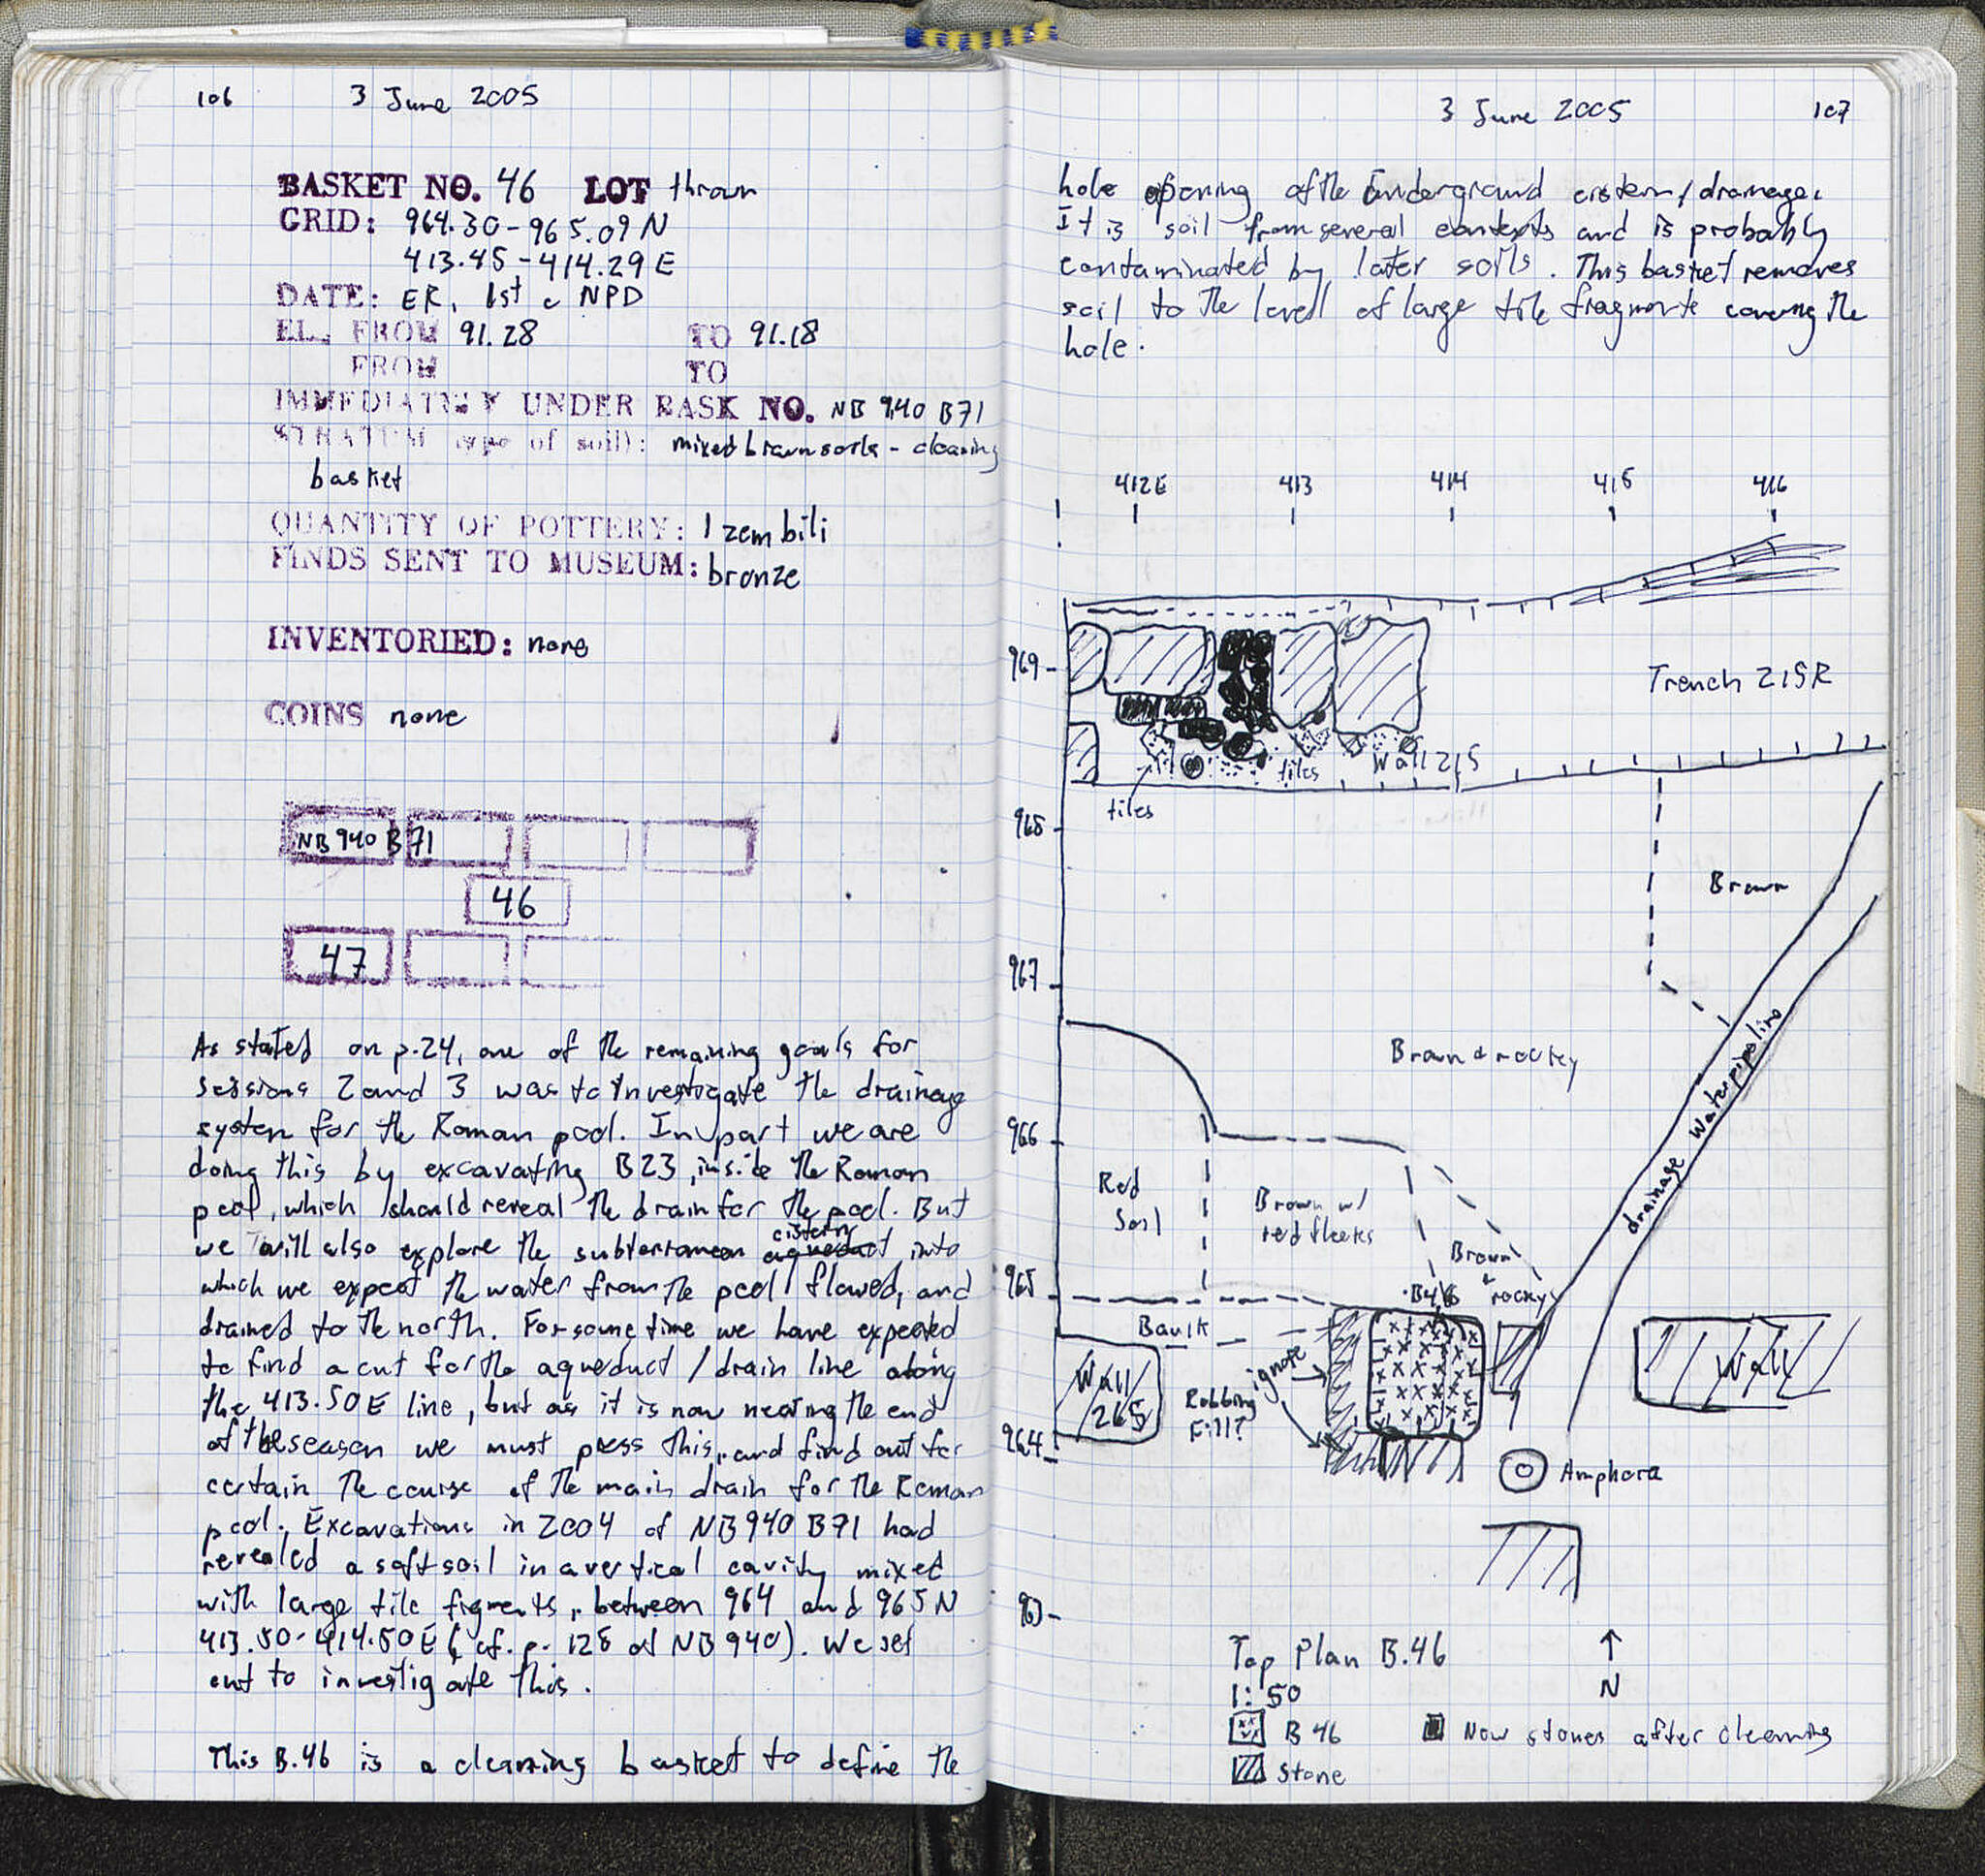 106 3 June 2005
BASKET NO. 46 LOT thrown
GRID: 964.30-965.09 N
413.45-414.29 E
DATE: ER, 1st c NPD
EL. FROM 91.28 TO 91.18
FROM TO
IMMEDIATELY UNDER BASK NO. NB 940 B71
STRATUM (type of soil): mixed brown soils - cleaning
basket
QUANTITY OF POTTERY: 1 zembili
FINDS SENT TO MUSEUM: bronze
INVENTORIED: none
COINS none
NB 940 B 71
46
47
As stated on p.24, one of the remaining goals for
sessions 2 and 3 was to investigate the drainage
system for the Roman pool. In part we are
doing this by excavating B23, inside the Roman
pool, which should reveal the drain for the pool. But
we will also explore the subterranean cistern aqueduct into
which we expect the water from the pool flowed, and
drained to the north. For some time we have expected
to find a cut for the aqueduct / drain line along
the 413.50 E line, but as it is now nearing the end
of the season we must press this, and find out for
certain the course of the main drain for the Roman
pool. Excavations in 2004 of NB940 B71 had
revealed a soft soil in a vertical cavity mixed
with large tile figments, between 964 and 965 N
413.50-414.50 E (cf. p. 128 of NB 940). We set
out to investigate this.
This B.46 is a cleaning basket to define the
3 June 2005 107
hole opening of the underground cistern/drainage.
It is soil from several contexts and is probably
contaminated by later soils. This basket removes
soil to the level of large tile fragments covering the
hole.
412E 413 414 415 416
969
Trench 21SR
Wall 215
tiles
tiles
968
Brown
967
Brown & rocky
drainage Waterpipeline
966
Red
Soil
Brown w/
red flecks
Brown
&
rocky
965
B46
Baulk
Wall
265
ignore
Robbing
Fill?
Wall
964
Amphora
963
Top Plan B.46
1:50
N
B 46
Now stones after cleaning
Stone